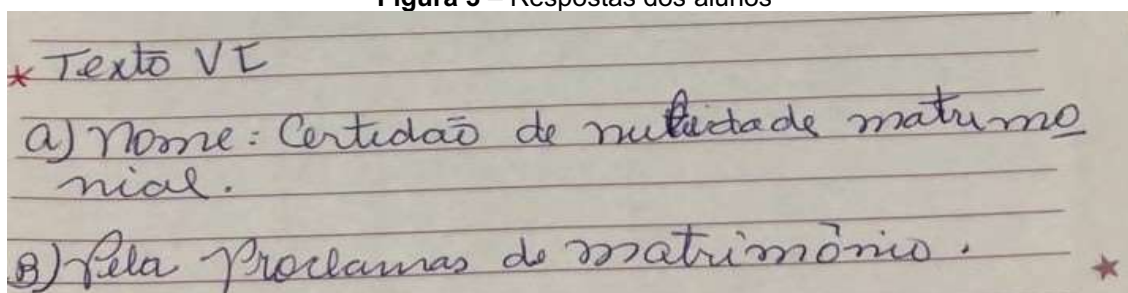 Figura 5 – Respostas dos alunos
* Texto VI
a) Nome: Certidão de matrimo
nial.
B) Pela Proclamas de matrimônio.